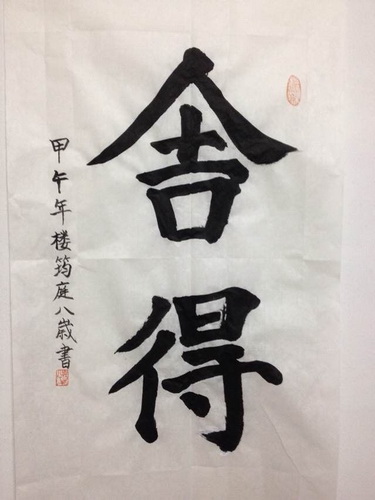 舍得
甲午年楼筠庭八歲書